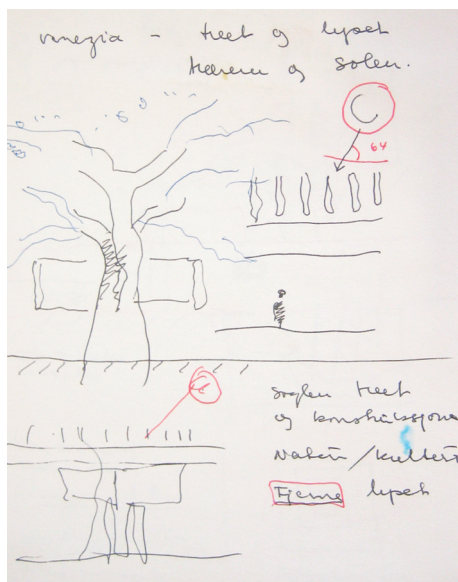 venezia - treet og lyset
og solen.
64
søylen treet
og konstruksjone
natur / kultur
Fjerne lyset